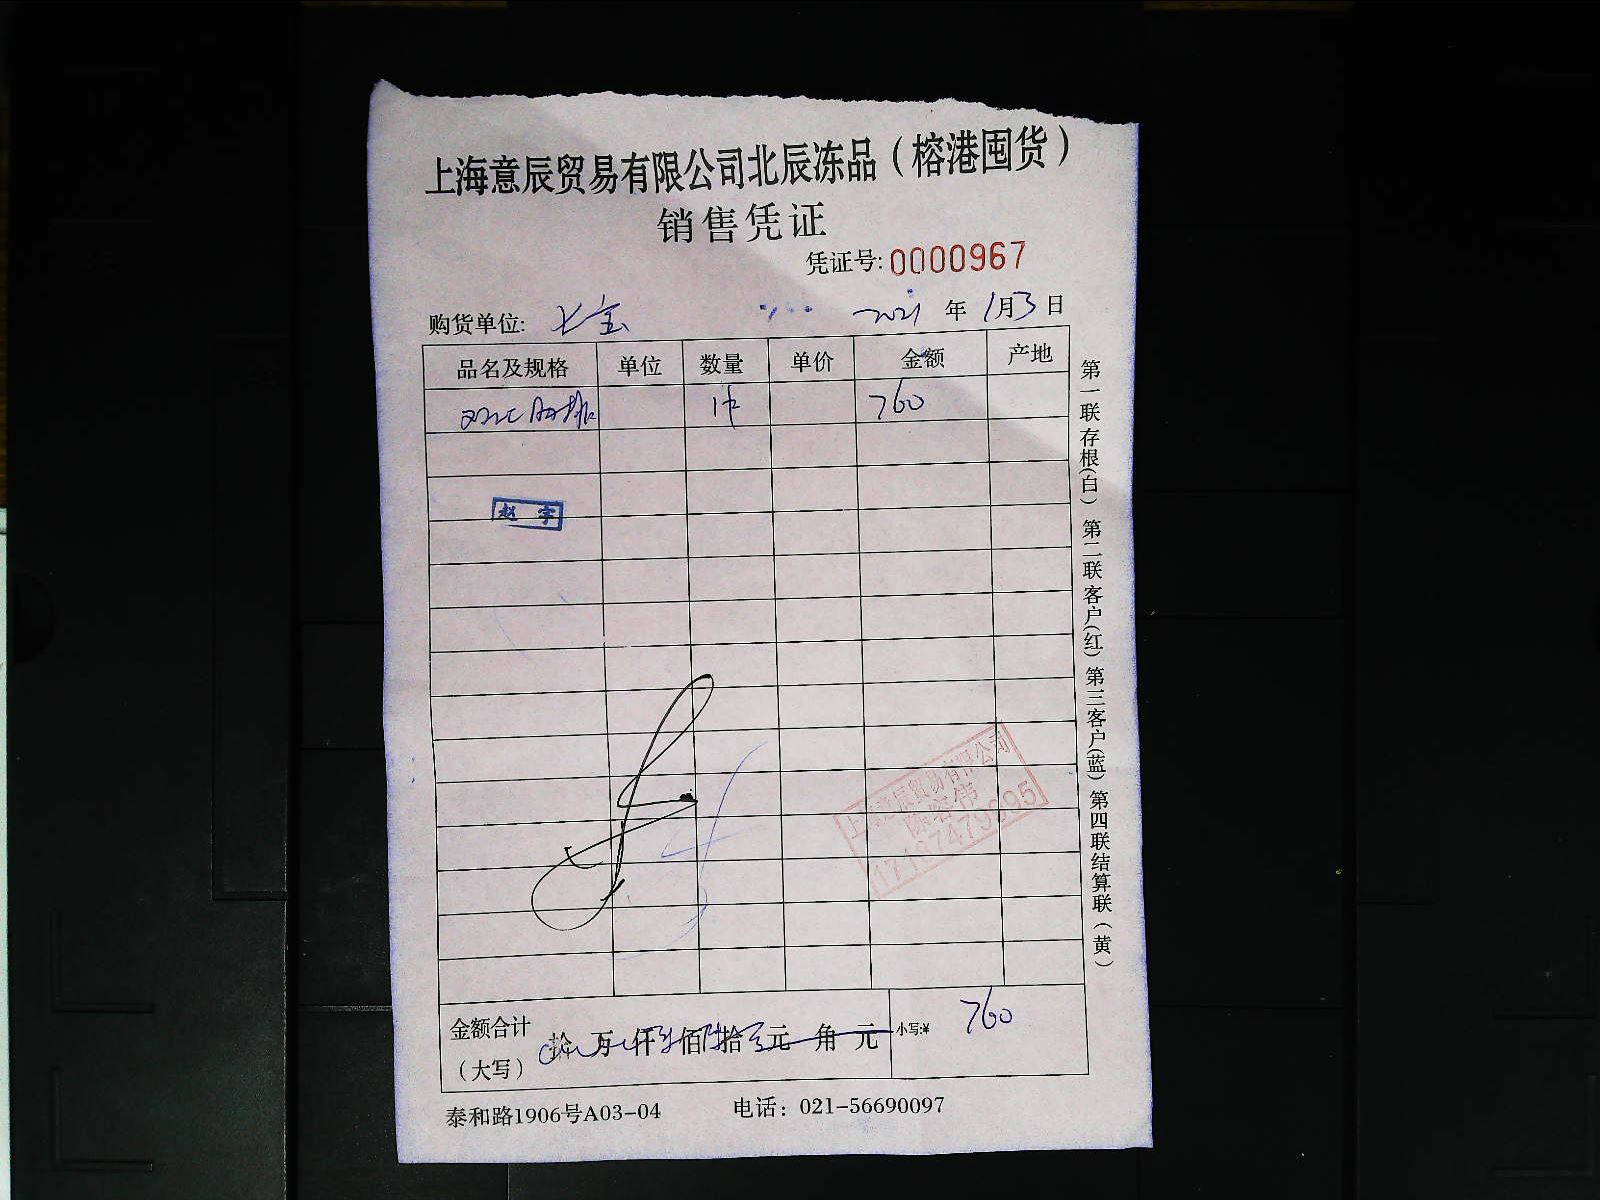 上海意辰贸易有限公司北辰冻品（榕港囤货）
销售凭证
凭证号: 0000967
购货单位: 七宝 2021 年 1月3日
品名及规格 单位 数量 单价 金额 产地
1件 760
赵宇
上海意辰贸易有限公司
金额合计 拾 万 仟 佰 拾 元 角 元 小写:¥ 760
（大写）
泰和路1906号A03-04 电话：021-56690097
第一联存根(白) 第二联客户(红) 第三客户(蓝) 第四联结算联（黄）